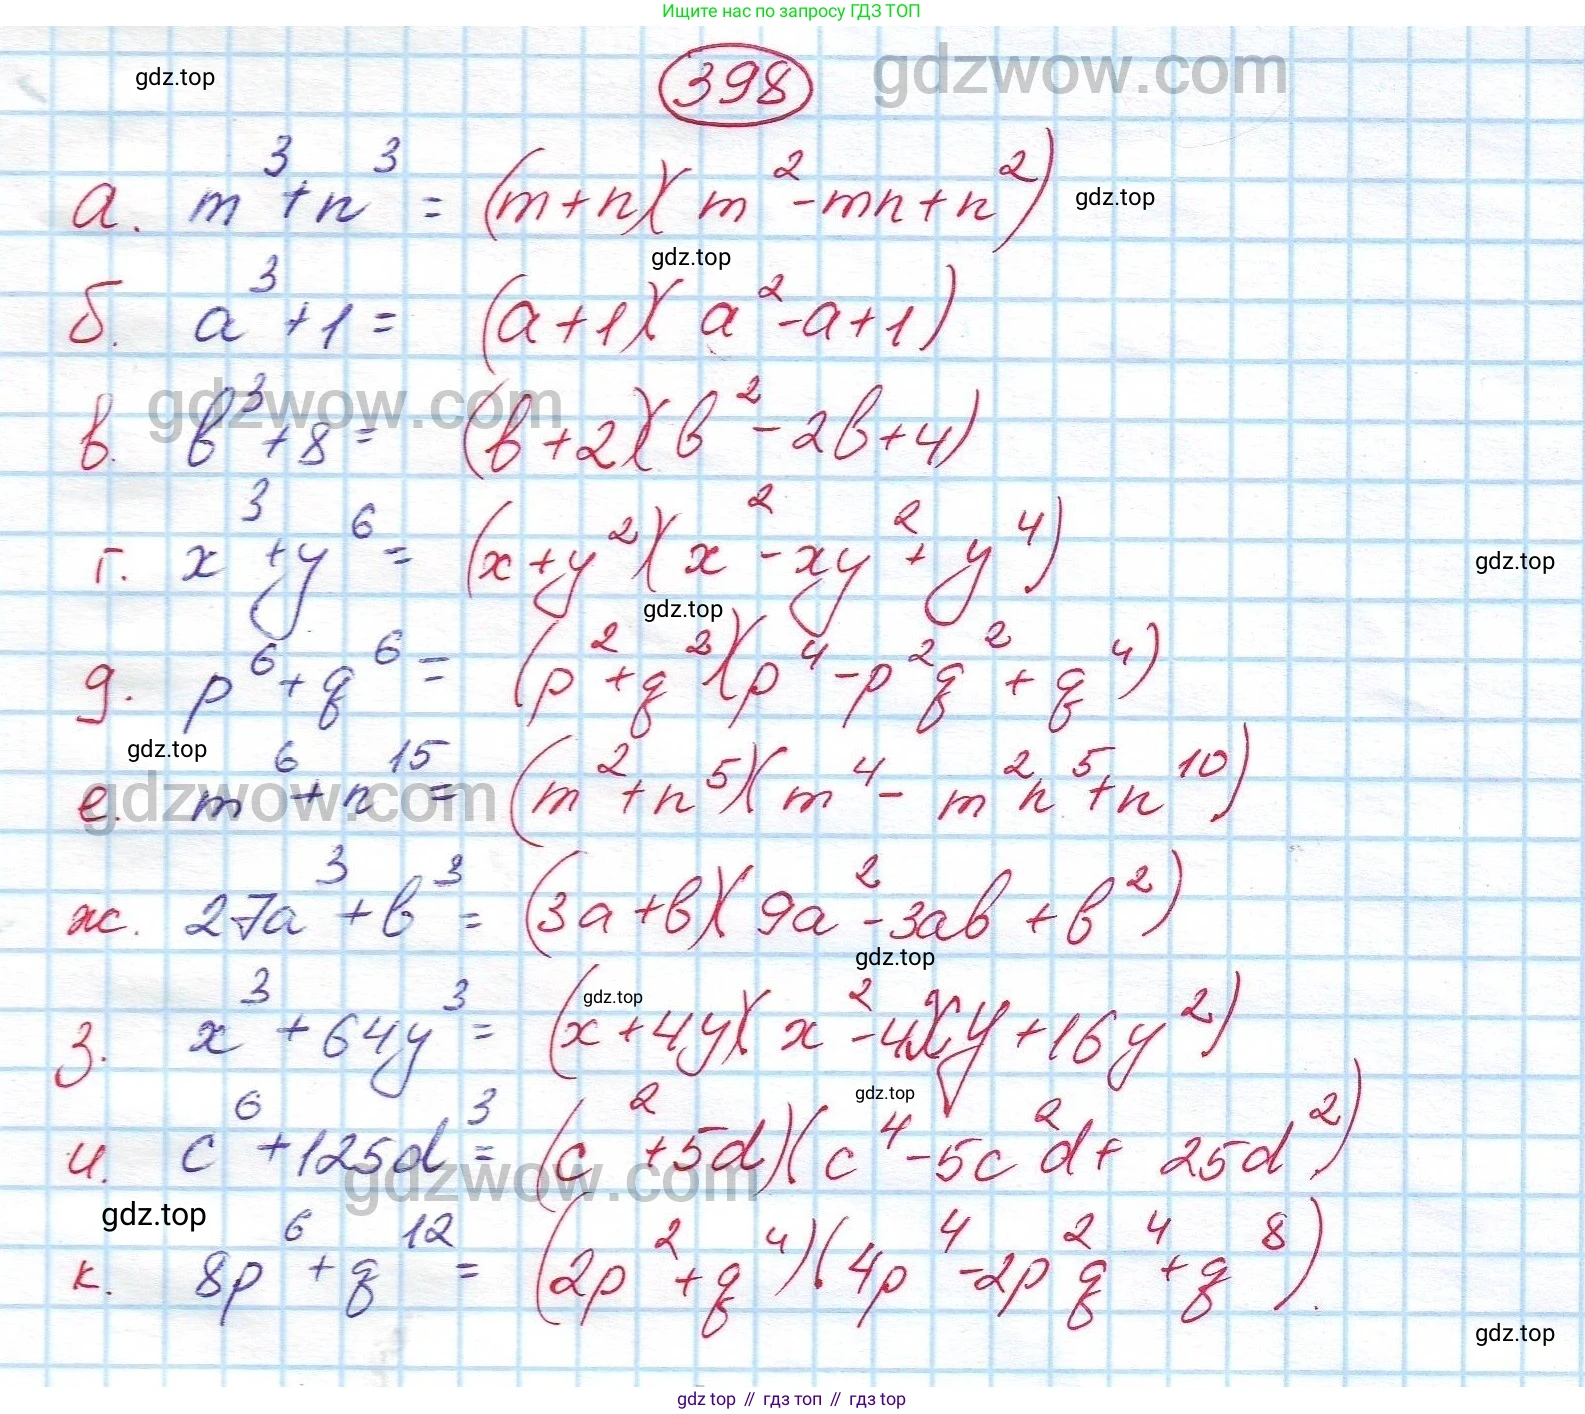 Ищите нас по запросу ГДЗ ТОП
398
gdzwow.com
gdz.top
а. m³+n³ = (m+n)(m²-mn+n²)
gdz.top
gdz.top
б. a³+1= (a+1)(a²-a+1)
gdzwow.com
в. b³+8= (b+2)(b²-2b+4)
г. x³+y⁶= (x+y²)(x²-xy²+y⁴)
gdz.top
gdz.top
д. p⁶+q⁶= (p²+q²)(p⁴-p²q²+q⁴)
gdz.top
gdzwow.com
е. m⁶+n¹⁵= (m²+n⁵)(m⁴-m²n⁵+n¹⁰)
ж. 27a³+b³= (3a+b)(9a²-3ab+b²)
gdz.top
gdz.top
з. x³+64y³= (x+4y)(x²-4xy+16y²)
gdz.top
и. c⁶+125d³= (c²+5d)(c⁴-5c²d+25d²)
gdzwow.com
gdz.top
к. 8p⁶+q¹²= (2p²+q⁴)(4p⁴-2p²q⁴+q⁸).
gdz.top
gdz top // гдз топ // gdz top